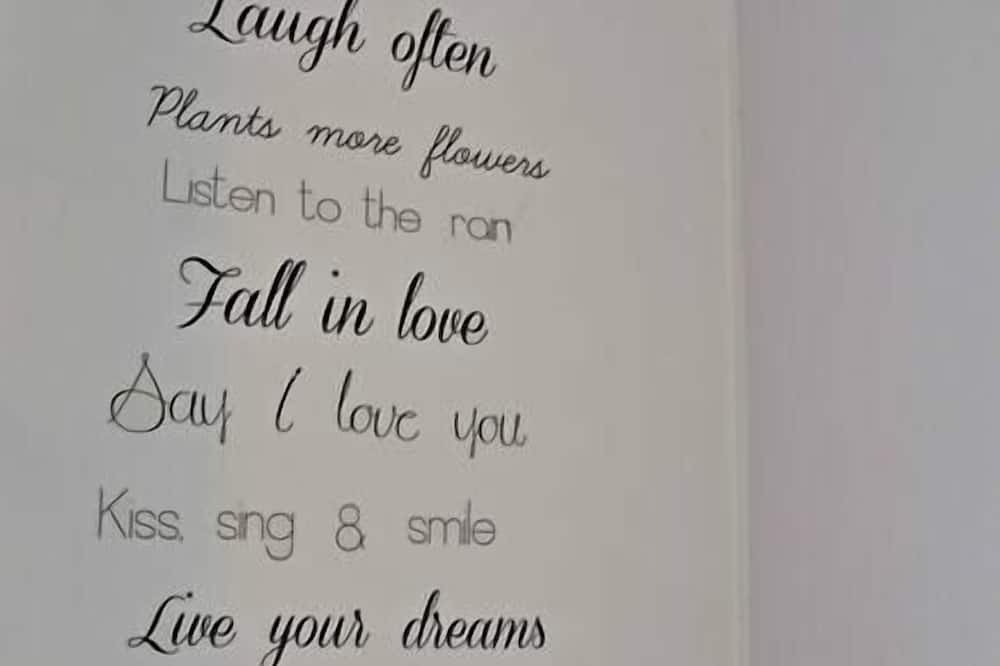 Laugh often
Plants more flowers
Listen to the rain
Fall in love
Say I love you
Kiss, sing & smile
Live your dreams